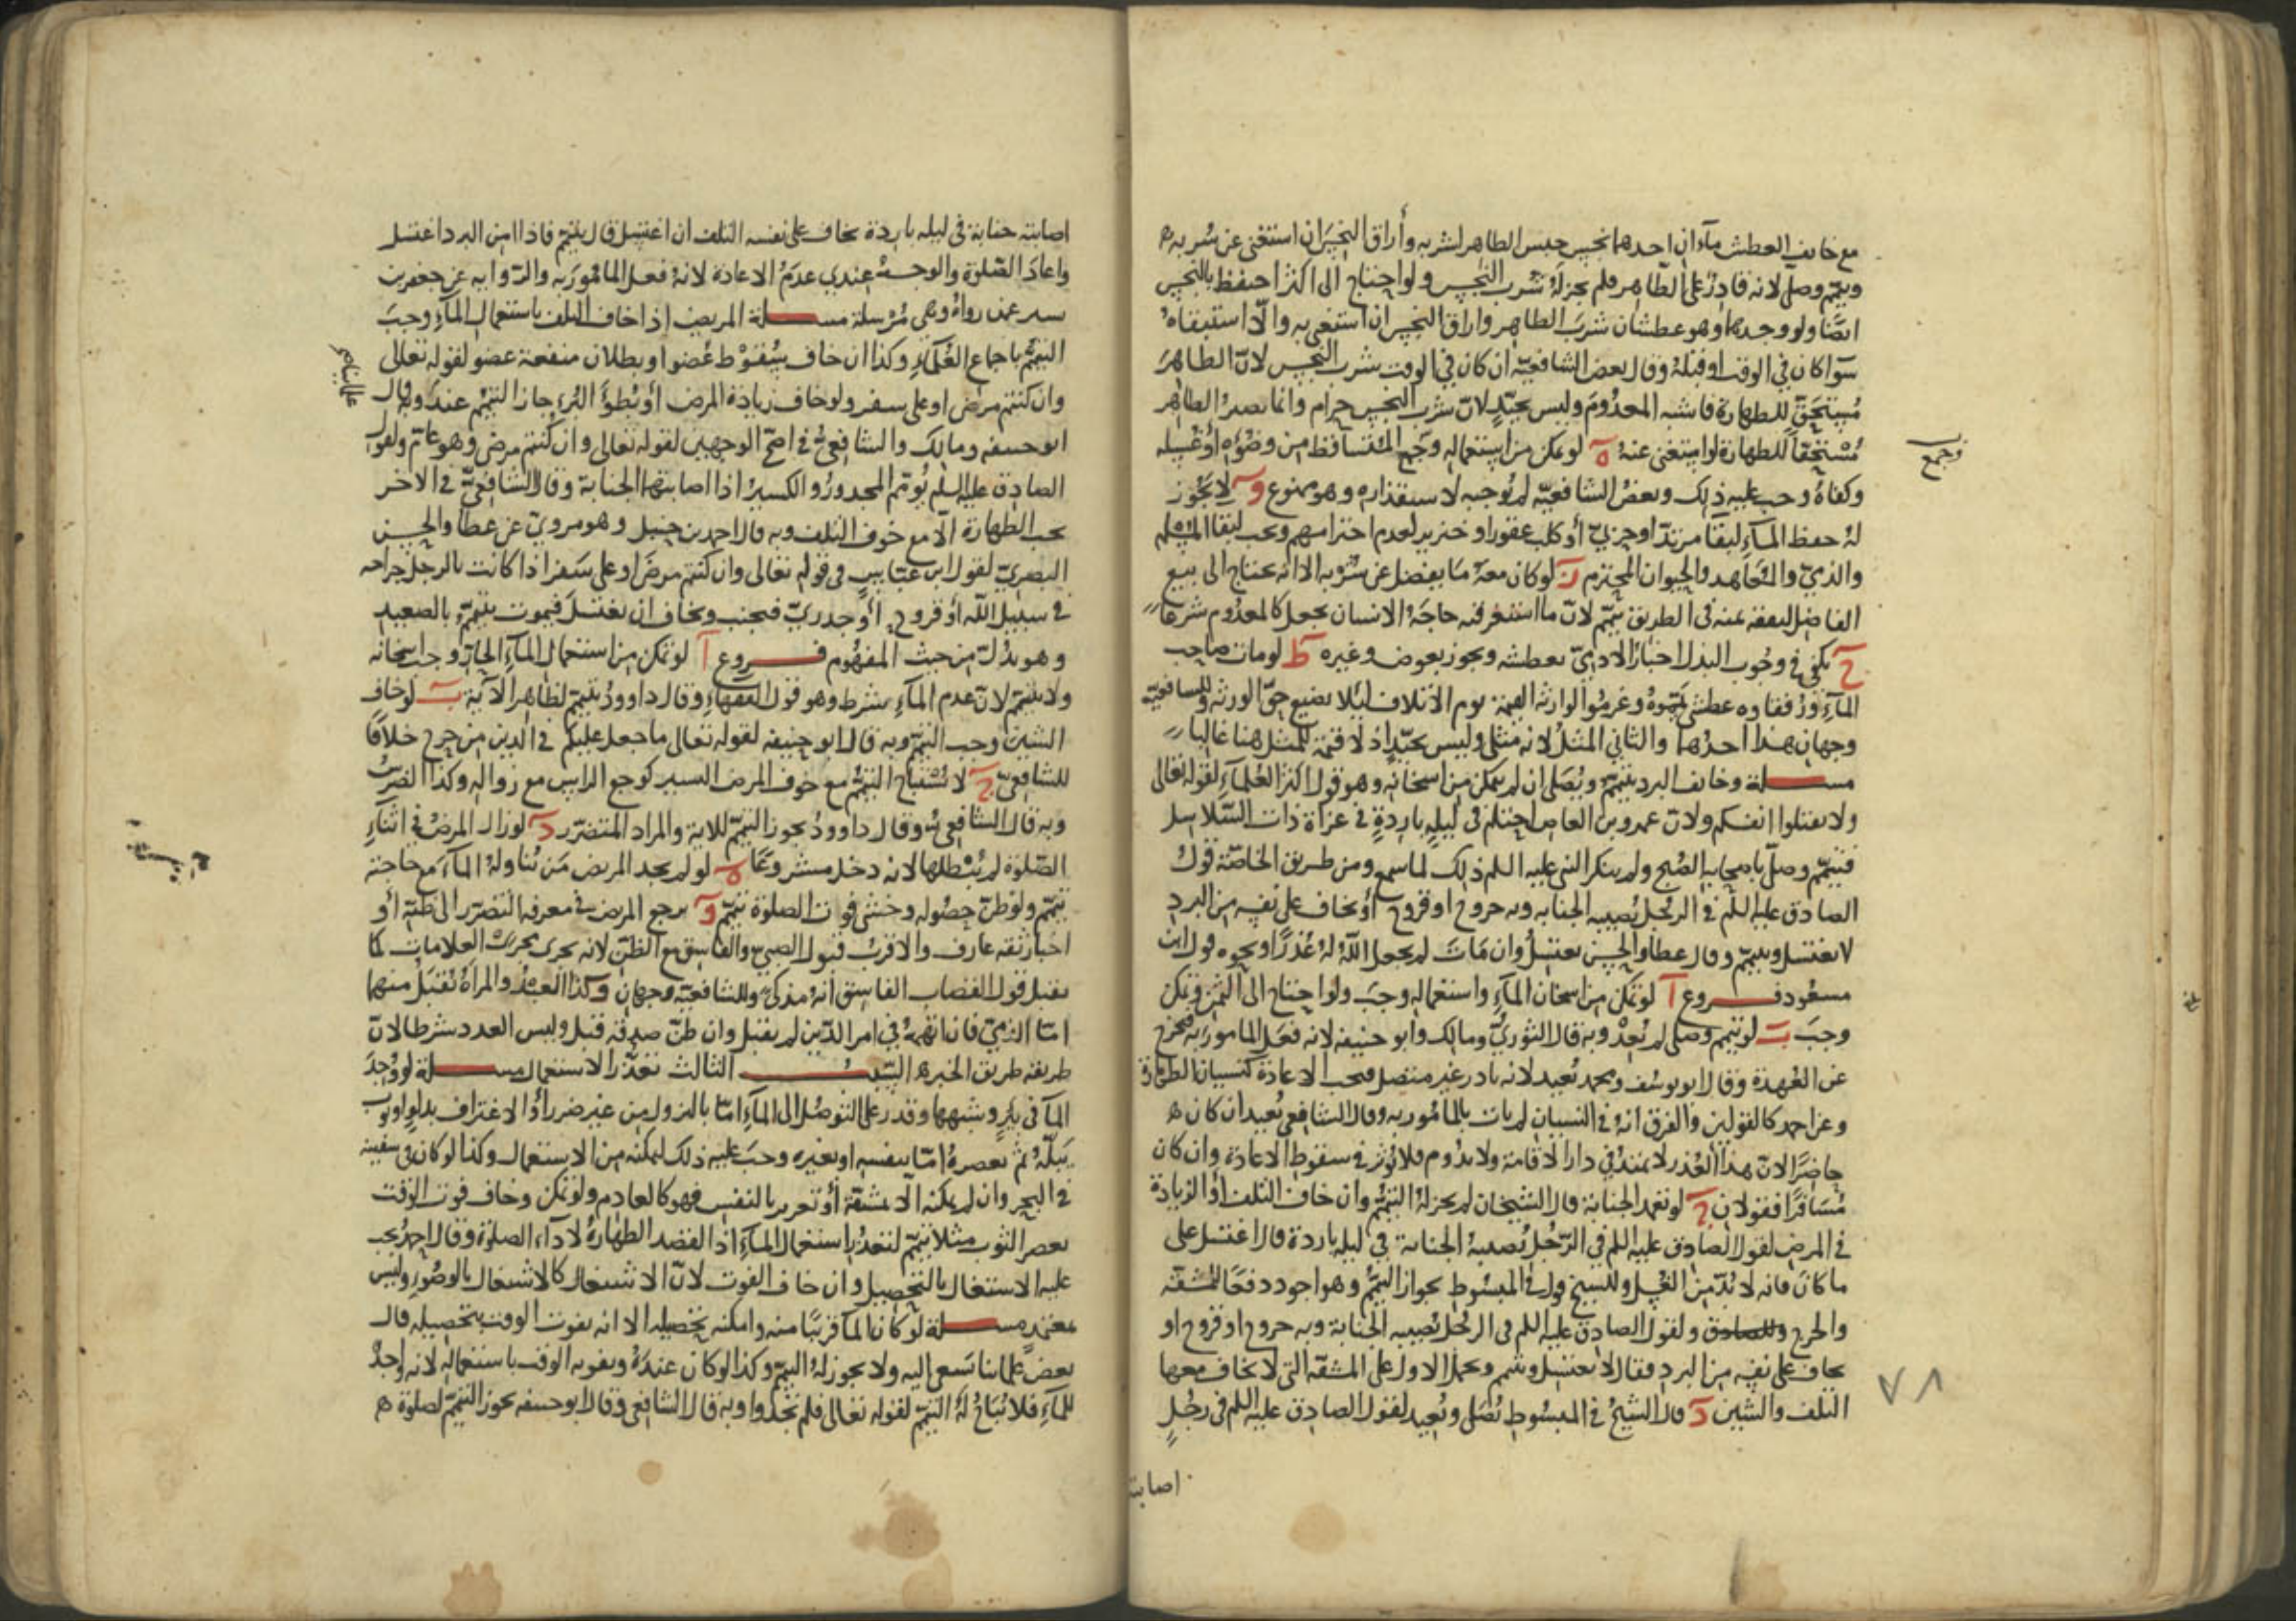 مع خايف العطش ماءان احدهما نجس حبس الطاهر لشربه وأراق النجس ان استغنى عن شربه
ويتمم وصلى لانه قادر على الطاهر فلم يجز له شرب النجس ولو احتاج الى اكثر احتفظ بالنجس
ايضا ولو وجدهما وهو عطشان شرب الطاهر واراق النجس ان استغنى به والا استبقاه
سوا كان في الوقت او قبله وقال بعض الشافعية ان كان في الوقت شرب النجس لان الطاهر
مستحق للطهارة فاشبه المعدوم وليس بجيد لان شرب النجس حرام وانما يصير الطاهر
مستحقا للطهارة لو استغنى عنه ه لو تمكن من استعماله وجمع المتساقط من وضوه او غسله
وكفاه وجب عليه ذلك وبعض الشافعية لم يوجبه لاستقذاره وهو ممنوع و لا يجوز
له حفظ الماء لبقا مرتد او حربي أو كلب عقور او خنزير لعدم احترامهم ويجب لبقا المسلم
والذمي والمعاهد والحيوان المحترم ز لو كان معه ما يفضل عن شربه الا انه يحتاج الى بيع
الفاضل لنفقة ثمنه في الطريق تيمم لان ما استغرقته حاجة الانسان يجعل كالمعدوم شرعا
ح يكفي في وجوب البذل اخبار الادمي بعطشه ويجوز بعوض وغيره ط لو مات صاحب
الماء ورفقاوه عطشى يمموه وغرموا لوارثه القيمة يوم الاتلاف ليلا يضيع حق الورثة وللشافعية
وجهان هذا احدهما والثاني المثل لانه مثلي وليس بجيد اذ لا قيمة للمثل هنا غالبا
مسلة وخائف البرد يتيمم ويصلى ان لم يتمكن من اسخانه وهو قول اكثر العلماء لقوله تعالى
ولا تقتلوا انفسكم ولان عمرو بن العاص احتلم في ليلة باردة في غزاة ذات السلاسل
فتيمم وصلى باصحابه الصبح ولم ينكر النبي عليه السلم ذلك لما سمع ومن طريق الخاصة قول
الصادق عليه السلم في الرجل تصيبه الجنابه وبه جروح او قروح أو يخاف على نفسه من البرد
لا يغتسل ويتيمم وقال عطا والحسن يغتسل وان مات لم يجعل الله له عذرا ونحوه قول ابن
مسعود فروع آ لو تمكن من اسخان الماء واستعماله وجب ولو احتاج الى الثمن وتمكن
وجب ب لو تيمم وصلى لم يعد وبه قال الثوري ومالك وابو حنيفه لانه فعل المامور به فخرج
عن العهدة وقال ابو يوسف ومحمد يعيد لانه نادر غير متصل فتجب الاعادة كنسيان الطهارة
وعن احمد كالقولين والفرق انه في النسيان لم يات بالمامور به وقال الشافعي يعيد ان كان
حاضرا لان هذا العذر لا يمتد في دار الاقامة ولا يدوم فلا يؤثر في سقوط الاعادة وان كان
مسافرا فقولان ج لو تعمد الجنابة قال الشيخان لم يجز له التيمم وان خاف التلف أو الزيادة
في المرض لقول الصادق عليه السلم في الرجل تصيبه الجنابة في ليله باردة قال اغتسل على
ما كان فانه لا بد من الغسل وللشيخ قول في المبسوط بجواز التيمم وهو اجود دفعا للمشقه
والحرج ولقول الصادق عليه السلم في الرجل تصيبه الجنابة وبه جروح او قروح او
يخاف على نفسه من البرد فقال لا يغتسل ويتيمم ويحمل الاول على المشقه التي لا يخاف معها
التلف والشين د قال الشيخ في المبسوط يصلى ويعيد لقول الصادق عليه السلم في رجل
اصابته
وجمع
٧٨
اصابته جنابة في ليله باردة يخاف على نفسه التلف ان اغتسل قال يتيمم فاذا امن البرد اغتسل
واعاد الصلوة والوجه عندي عدم الاعادة لانه فعل المامور به والروايه عن جعفر بن
بشير عمن رواه وهي مرسلة مسلة المريض إذا خاف التلف باستعمال الماء وجب
التيمم باجماع العلماء وكذا ان خاف سقوط عضو او بطلان منفعة عضو لقوله تعالى
وان كنتم مرضى او على سفر ولو خاف زيادة المرض أو بطؤ البرء جاز التيمم عند وبه قال
ابو حنيفه ومالك والشافعي في اصح الوجهين لقوله تعالى وان كنتم مرضى وهو عام ولقول
الصادق عليه السلم يؤمم المجدور والكسير اذا اصابتهما الجنابة وقال الشافعي في الاخر
يجب الطهارة الا مع خوف التلف وبه قال احمد بن حنبل وهو مروي عن عطا والحسن
البصري لقول ابن عباس في قوله تعالى وان كنتم مرضى او على سفر اذا كانت بالرجل جراحه
في سبيل الله أو قروح أو جدري فيجنب ويخاف ان يغتسل فيموت يتيمم بالصعيد
وهو يدل من حيث المفهوم فروع آ لو تمكن من استعمال الماء الحار وجب اسخانه
ولا يتيمم لان عدم الماء شرط وهو قول الفقهاء وقال داوود يتيمم لظاهر الاية ب لو خاف
الشين وجب التيمم وبه قال ابو حنيفه لقوله تعالى ما جعل عليكم في الدين من حرج خلافا
للشافعي ج لا يستباح التيمم مع خوف المرض اليسير كوجع الراس مع زواله وكذا الضرس
وبه قال الشافعي وقال داوود يجوز التيمم للاية والمراد المتضرر د لو زال المرض في اثناء
الصلوة لم يبطلها لانه دخل مشروعا ه لو لم يجد المريض من يناوله الماء مع حاجته
تيمم ولو ظن حصوله وخشي فوت الصلوة تيمم و يرجع المريض في معرفة التضرر الى ظنه أو
اخبار ثقه عارف والاقرب قبول الصبي والفاسق مع الظن لانه يجرى مجرى العلامات كما
يقبل قول القصاب الفاسق انه مذكى وللشافعية وجهان وكذا العبد والمراة يقبل منهما
اما الذمي فان اتهمه في امر الدين لم يقبل وان ظن صدقه قبل وليس العدد شرطا لان
طريقه طريق الخبر السبب الثالث تعذر الاستعمال مسلة لو وجد
الما في بئر وشبهها وقدر على التوصل الى الماء اما بالنزول من غير ضرر أو الاغتراف بدلو او ثوب
يبله ثم يعصره اما بنفسه او بغيره وجب عليه ذلك لتمكنه من الاستعمال وكذا لو كان في سفينه
في البحر وان لم يمكنه الا بمشقة أو تغرير بالنفس فهو كالعادم ولو تمكن وخاف فوت الوقت
بعصر الثوب مثلا تيمم لتعذر استعمال الماء اذ القصد الطهارة لاداء الصلوة وقال احمد يجب
عليه الاشتغال بالتحصيل وان خاف الفوت لان الاشتغال كالاشتغال بالوضوء وليس
بمعتمد مسلة لو كان الما قريبا منه وامكنه تحصيله الا انه يفوت الوقت بتحصيله قال
بعض علمائنا يسعى اليه ولا يجوز له التيمم وكذا لو كان عنده ويفوته الوقت باستعماله لانه واجد
للماء فلا يباح له التيمم لقوله تعالى فلم تجدوا وبه قال الشافعي وقال ابو حنيفه يجوز التيمم لصلوة
علمائنا